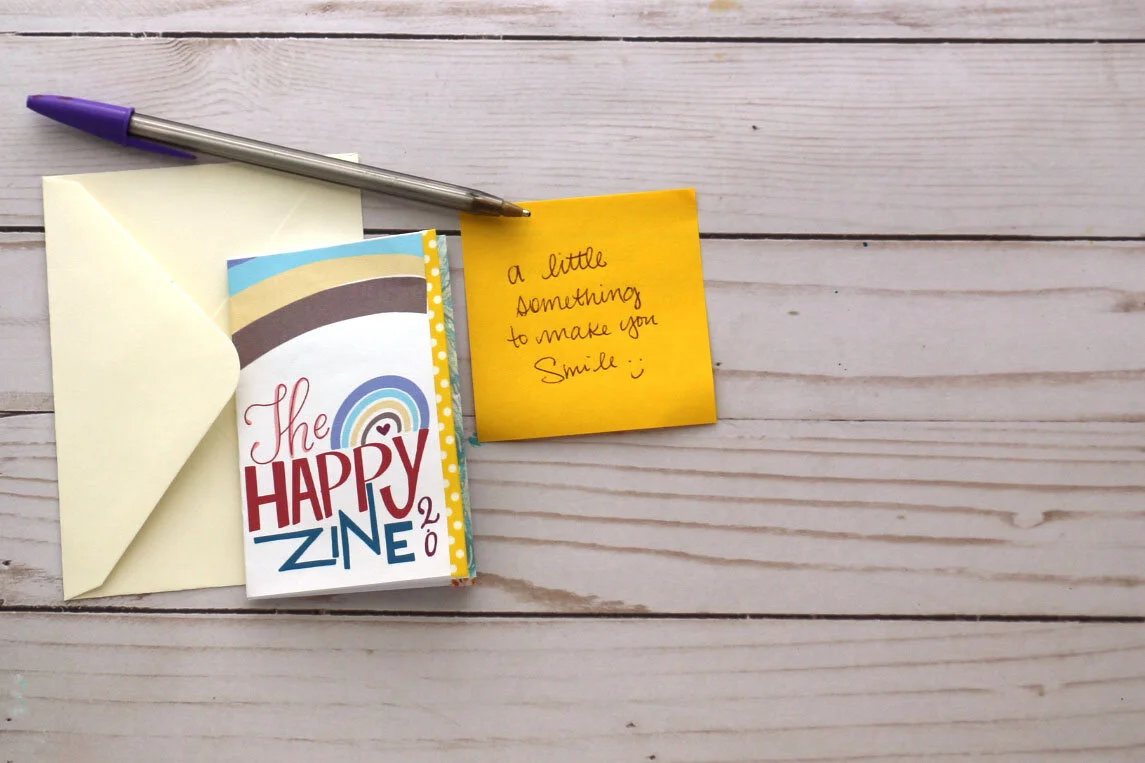 The
HAPPY
ZINE 2.0
a little
something
to make you
Smile :)